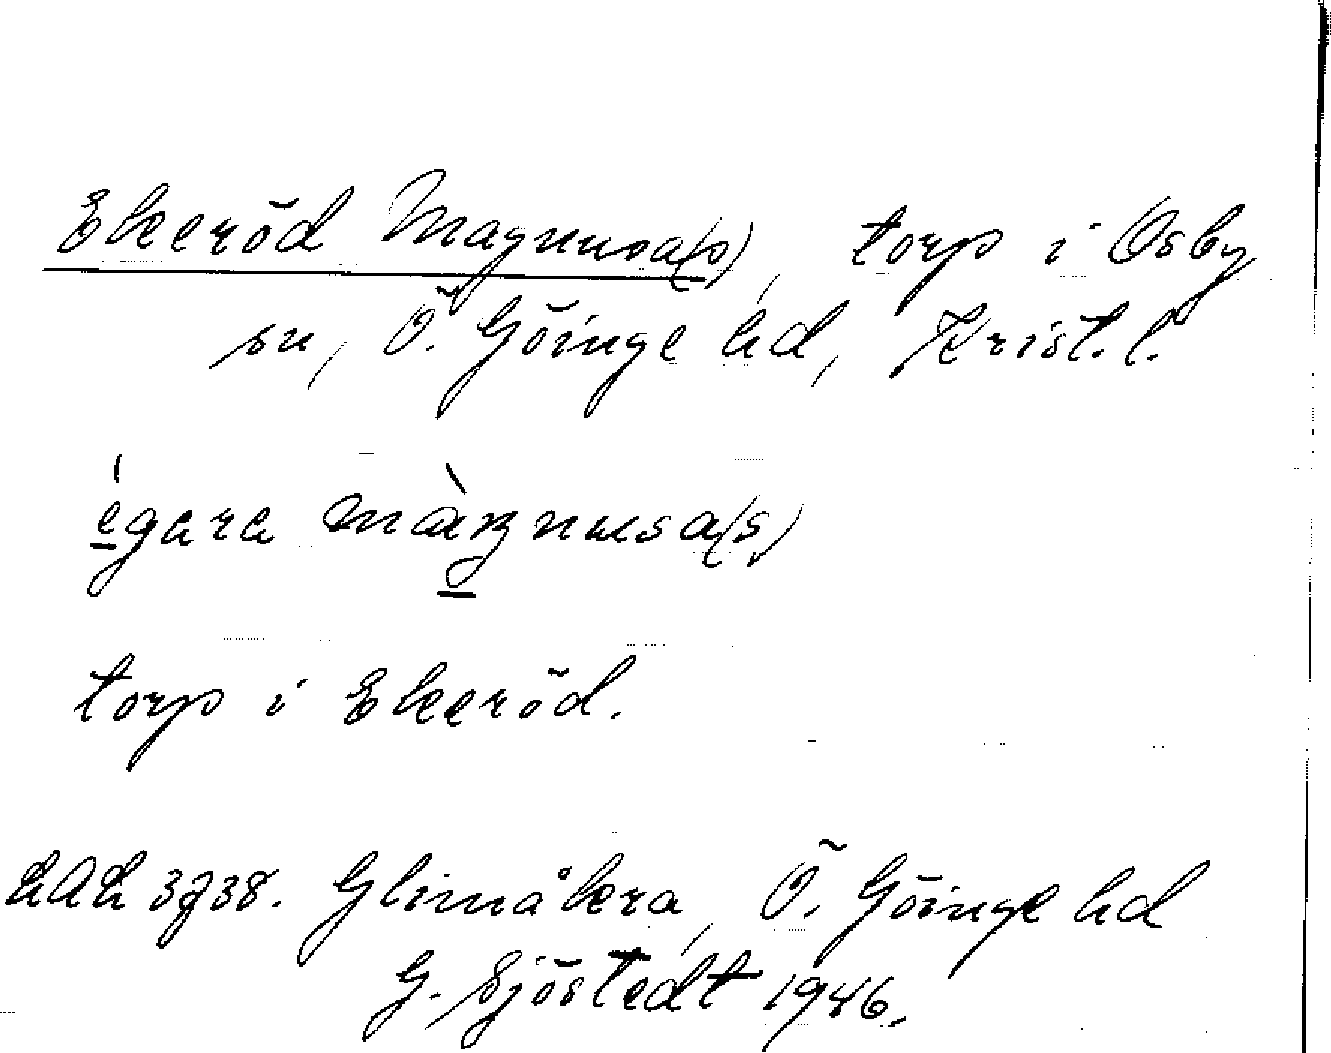 Ekeröd Magnusa(s), torp i Osby
sn, Ö. Göinge hd, Krist. l.
torp i Ekeröd.
3738. Glimåkra, Ö. Göinge hd
G. Sjöstedt 1946.